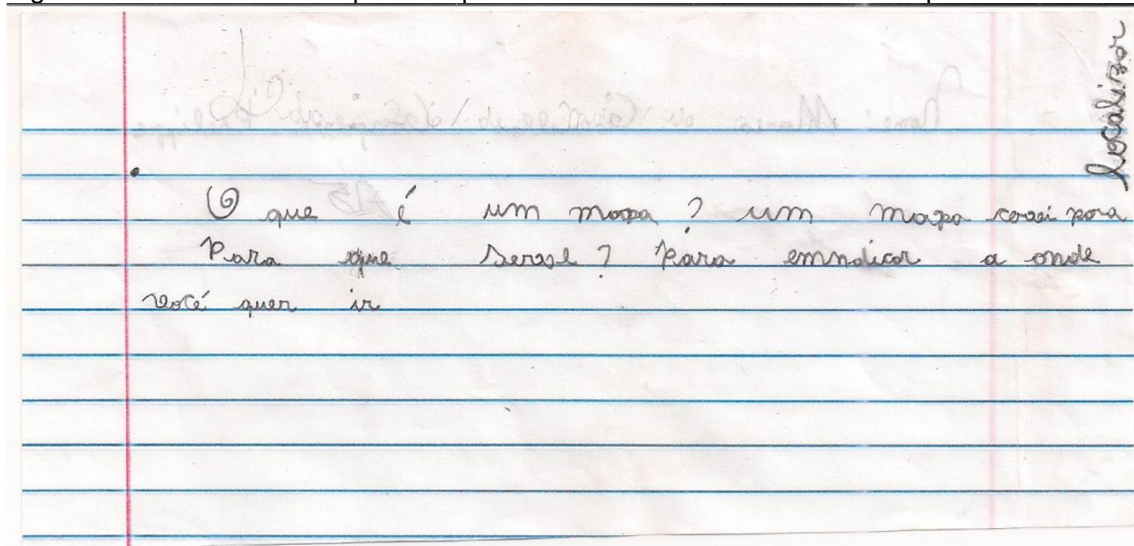 O que é um mapa? um mapa para
localizar
Para que serve? Para emndicar a onde
você quer ir